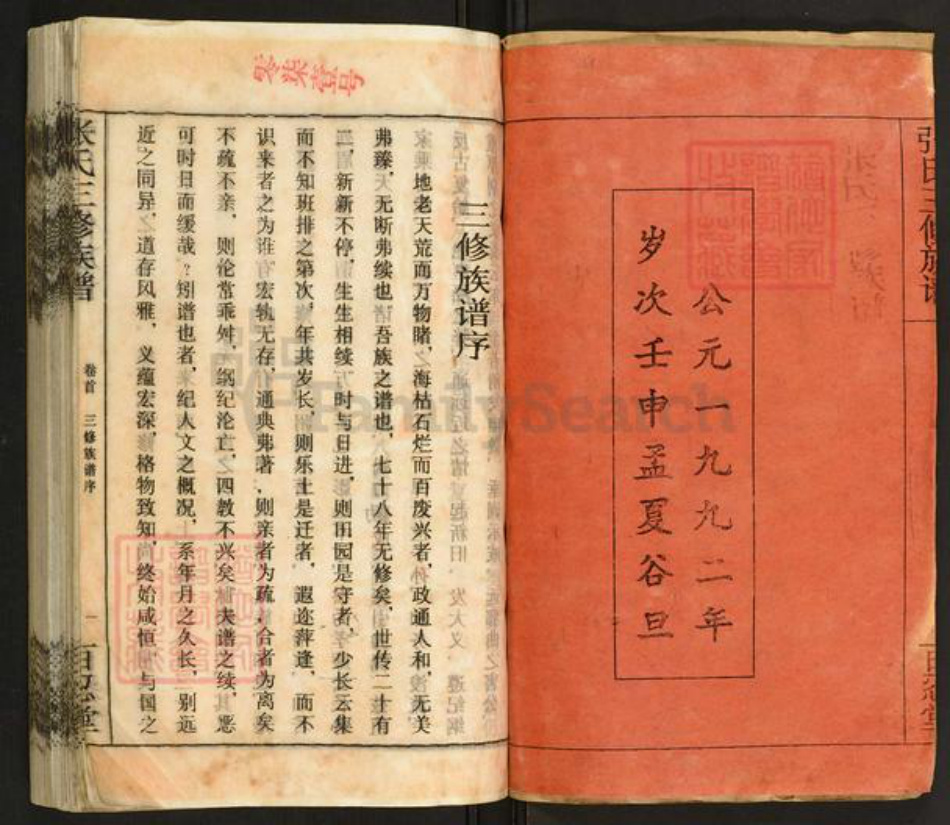 公元一九九二年
岁次壬申孟夏谷旦
张氏三修族谱
百忍堂
零柒壹号
三修族谱序
地老天荒而万物睹，海枯石烂而百废兴者，政通人和，无美
弗臻，天无断弗续也，吾族之谱也，七十八年无修矣，世传二十有
二，新新不停，生生相续，时与日进，则田园是守者，少长云集
而不知班排之第次，年共岁长，则乐土是迁者，遐迩萍逢，而不
识来者之为谁，宏轨无存，通典弗著，则亲者为疏，合者为离矣
不疏不亲，则伦常乖舛，纲纪沦亡，四教不兴矣，夫谱之续，恶
可时日而缓哉？矧谱也者，纪人文之概况，系年月之久长，别远
近之同异，道存风雅，义蕴宏深，格物致知，终始咸恒，与国之
张氏三修族谱
卷首 三修族谱序
一
百忍堂
FamilySearch